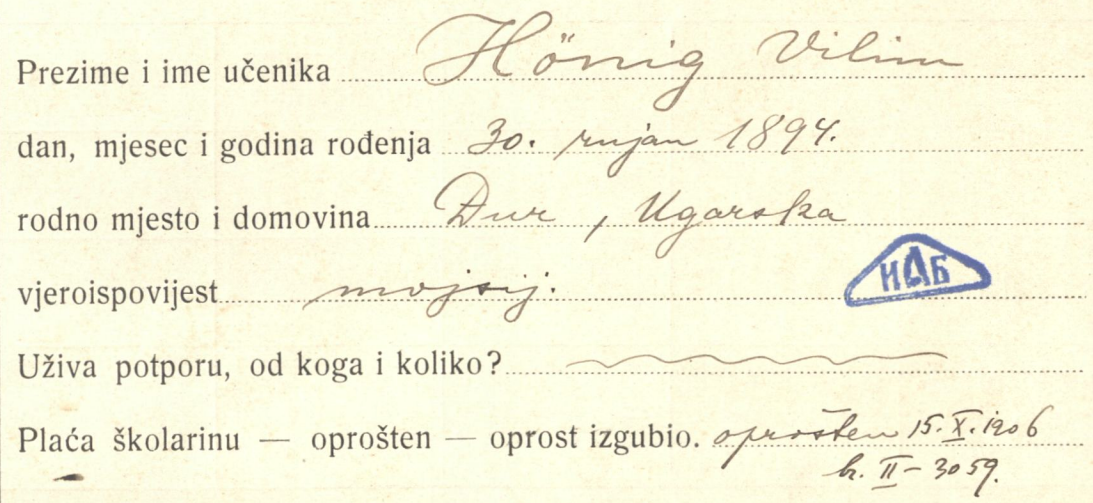 Prezime i ime učenika Hönig Vilim
dan, mjesec i godina rođenja 30. rujan 1894.
rodno mjesto i domovina Đur, Ugarska
vjeroispovijest mojsij.
ИАБ
Uživa potporu, od koga i koliko?
Plaća školarinu — oprošten — oprost izgubio. oprošten 15.X.1906
br. II – 3059.